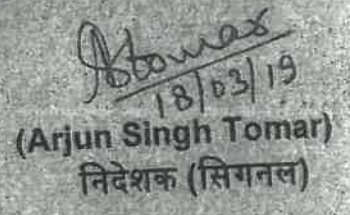 AStomar
18/03/19
(Arjun Singh Tomar)
निदेशक (सिगनल)